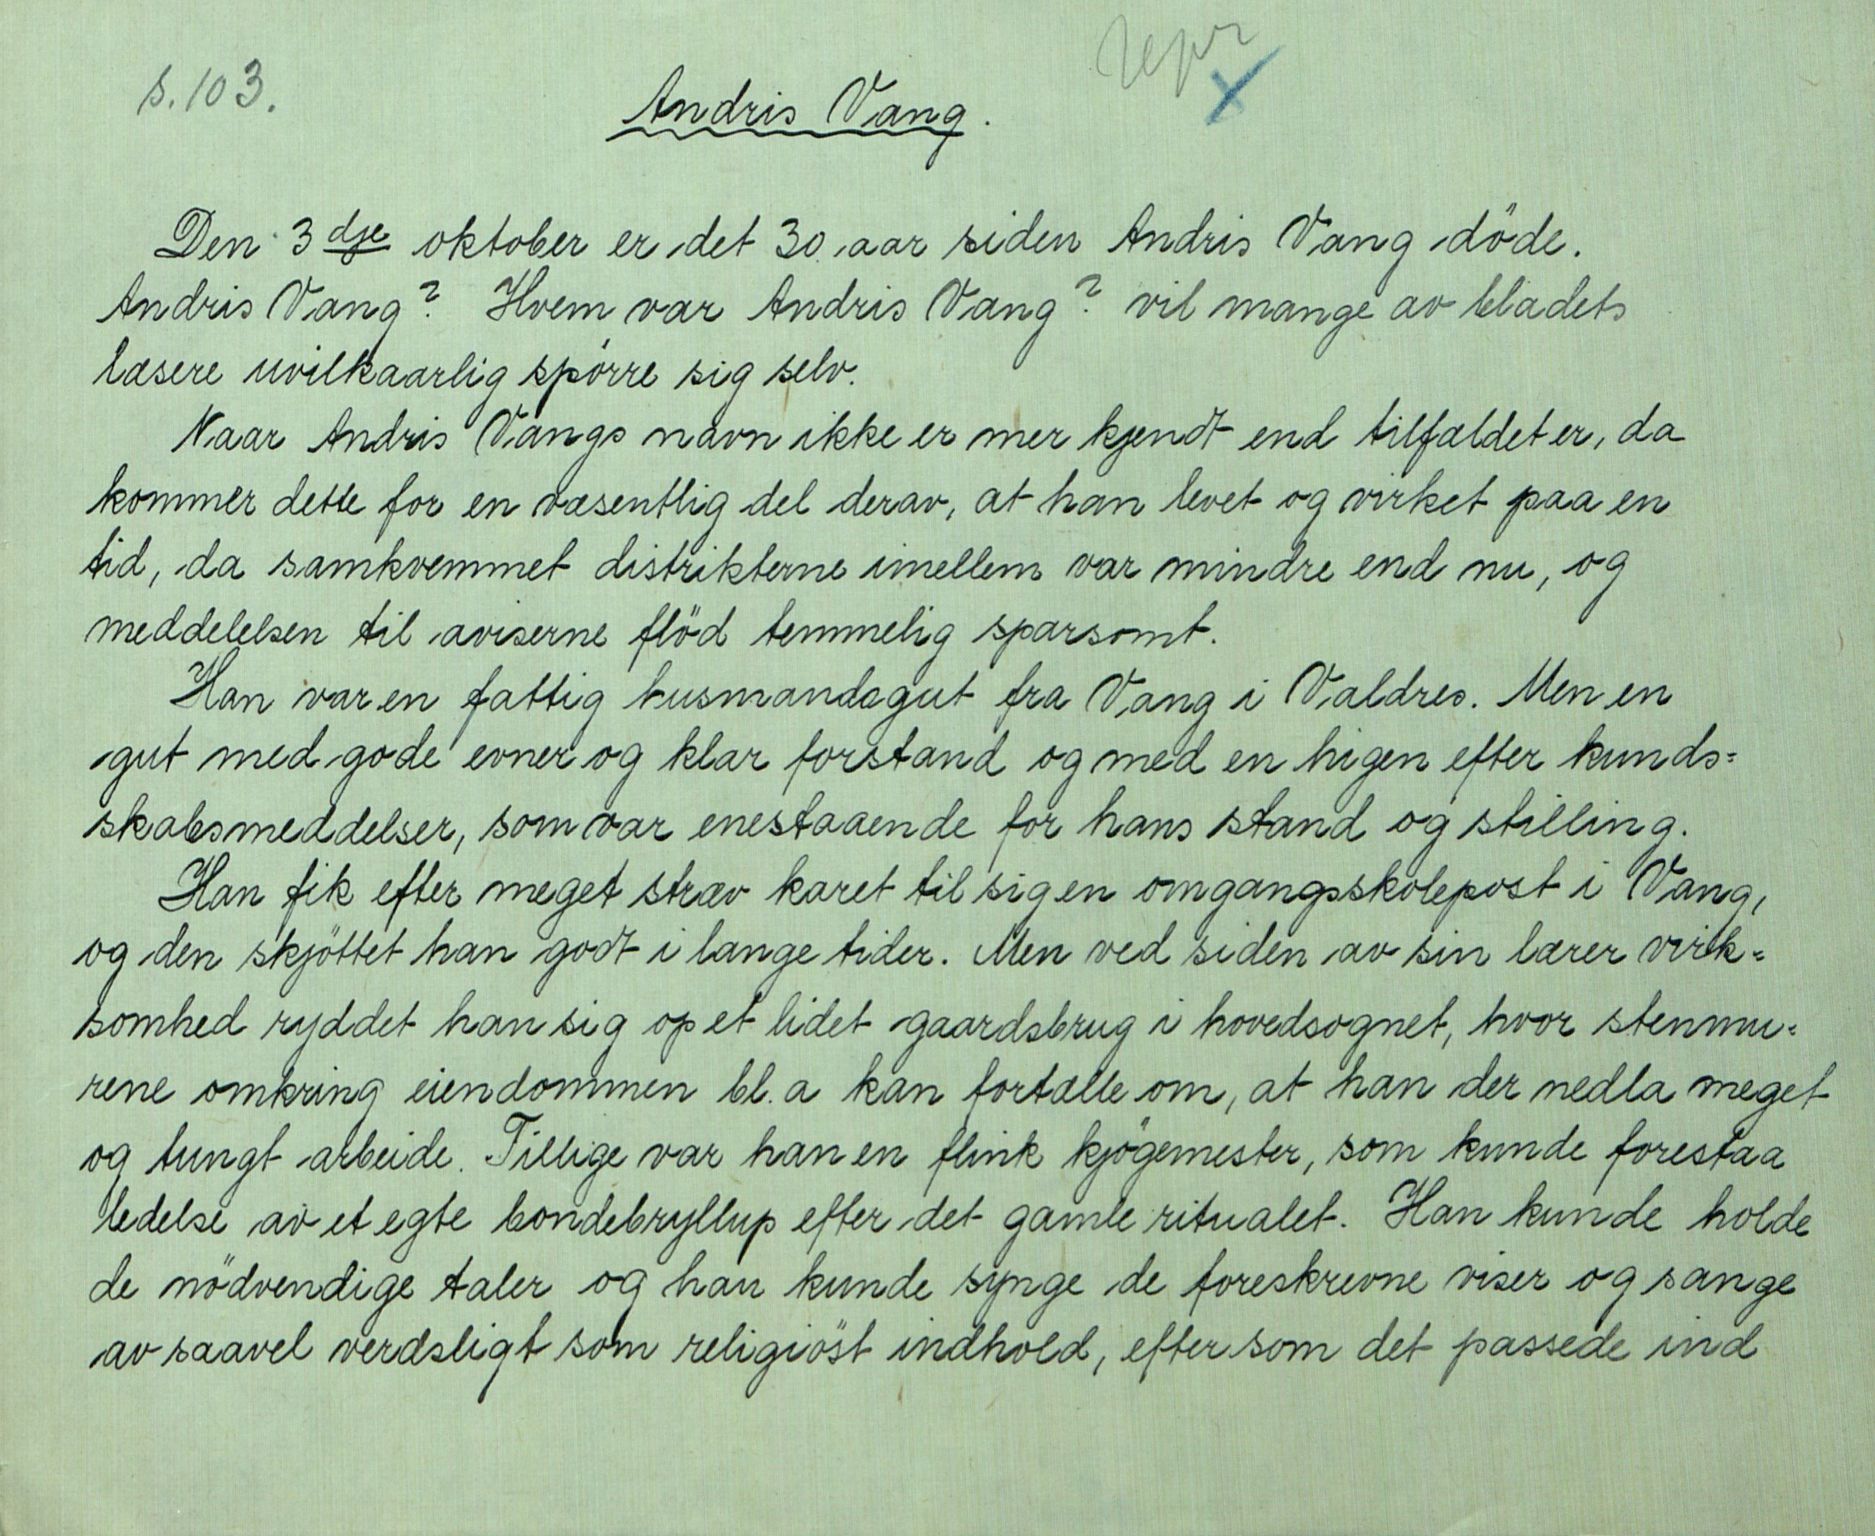 repr
s. 103.
Andris Vang.
Den 3dje oktober er det 30 aar siden Andris Vang döde.
Andris Vang? Hvem var Andris Vang? vil mange av bladets
læsere uvilkaarlig spörre sig selv.
Naar Andris Vangs navn ikke er mer kjendt end tilfældet er, da
kommer dette for en væsentlig del derav, at han levet og virket paa en
tid, da samkvemmet distrikterne imellem var mindre end nu, og
meddelelsen til aviserne flöd temmelig sparsomt.
Han var en fattig husmandsgut fra Vang i Valdres. Men en
gut med gode evner og klar forstand og med en higen efter kunds=
skabsmeddelser, som var enestaaende for hans stand og stilling.
Han fik efter meget stræv karet til sig en omgangsskolepost i Vang,
og den skjöttet han godt i lange tider. Men ved siden av sin lærer virk=
somhed ryddet han sig op et lidet gaardsbrug i hovedsognet, hvor stenmu=
rene omkring eiendommen bl. a kan fortælle om, at han der nedla meget
og tungt arbeide. Tillige var han en flink kjögemester, som kunde forestaa
ledelse av et egte bondebryllup efter det gamle ritualet. Han kunde holde
de nödvendige taler og han kunde synge de foreskrevne viser og sange
av saavel verdsligt som religiöst indhold, eftersom det passede ind